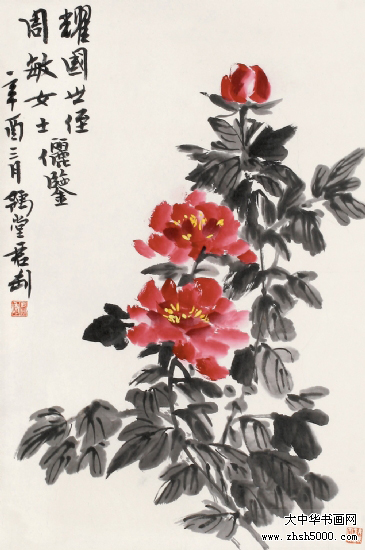 耀國世侄
周敏女士儷鑒
辛酉三月
大中华书画网
www.zhsh5000.com